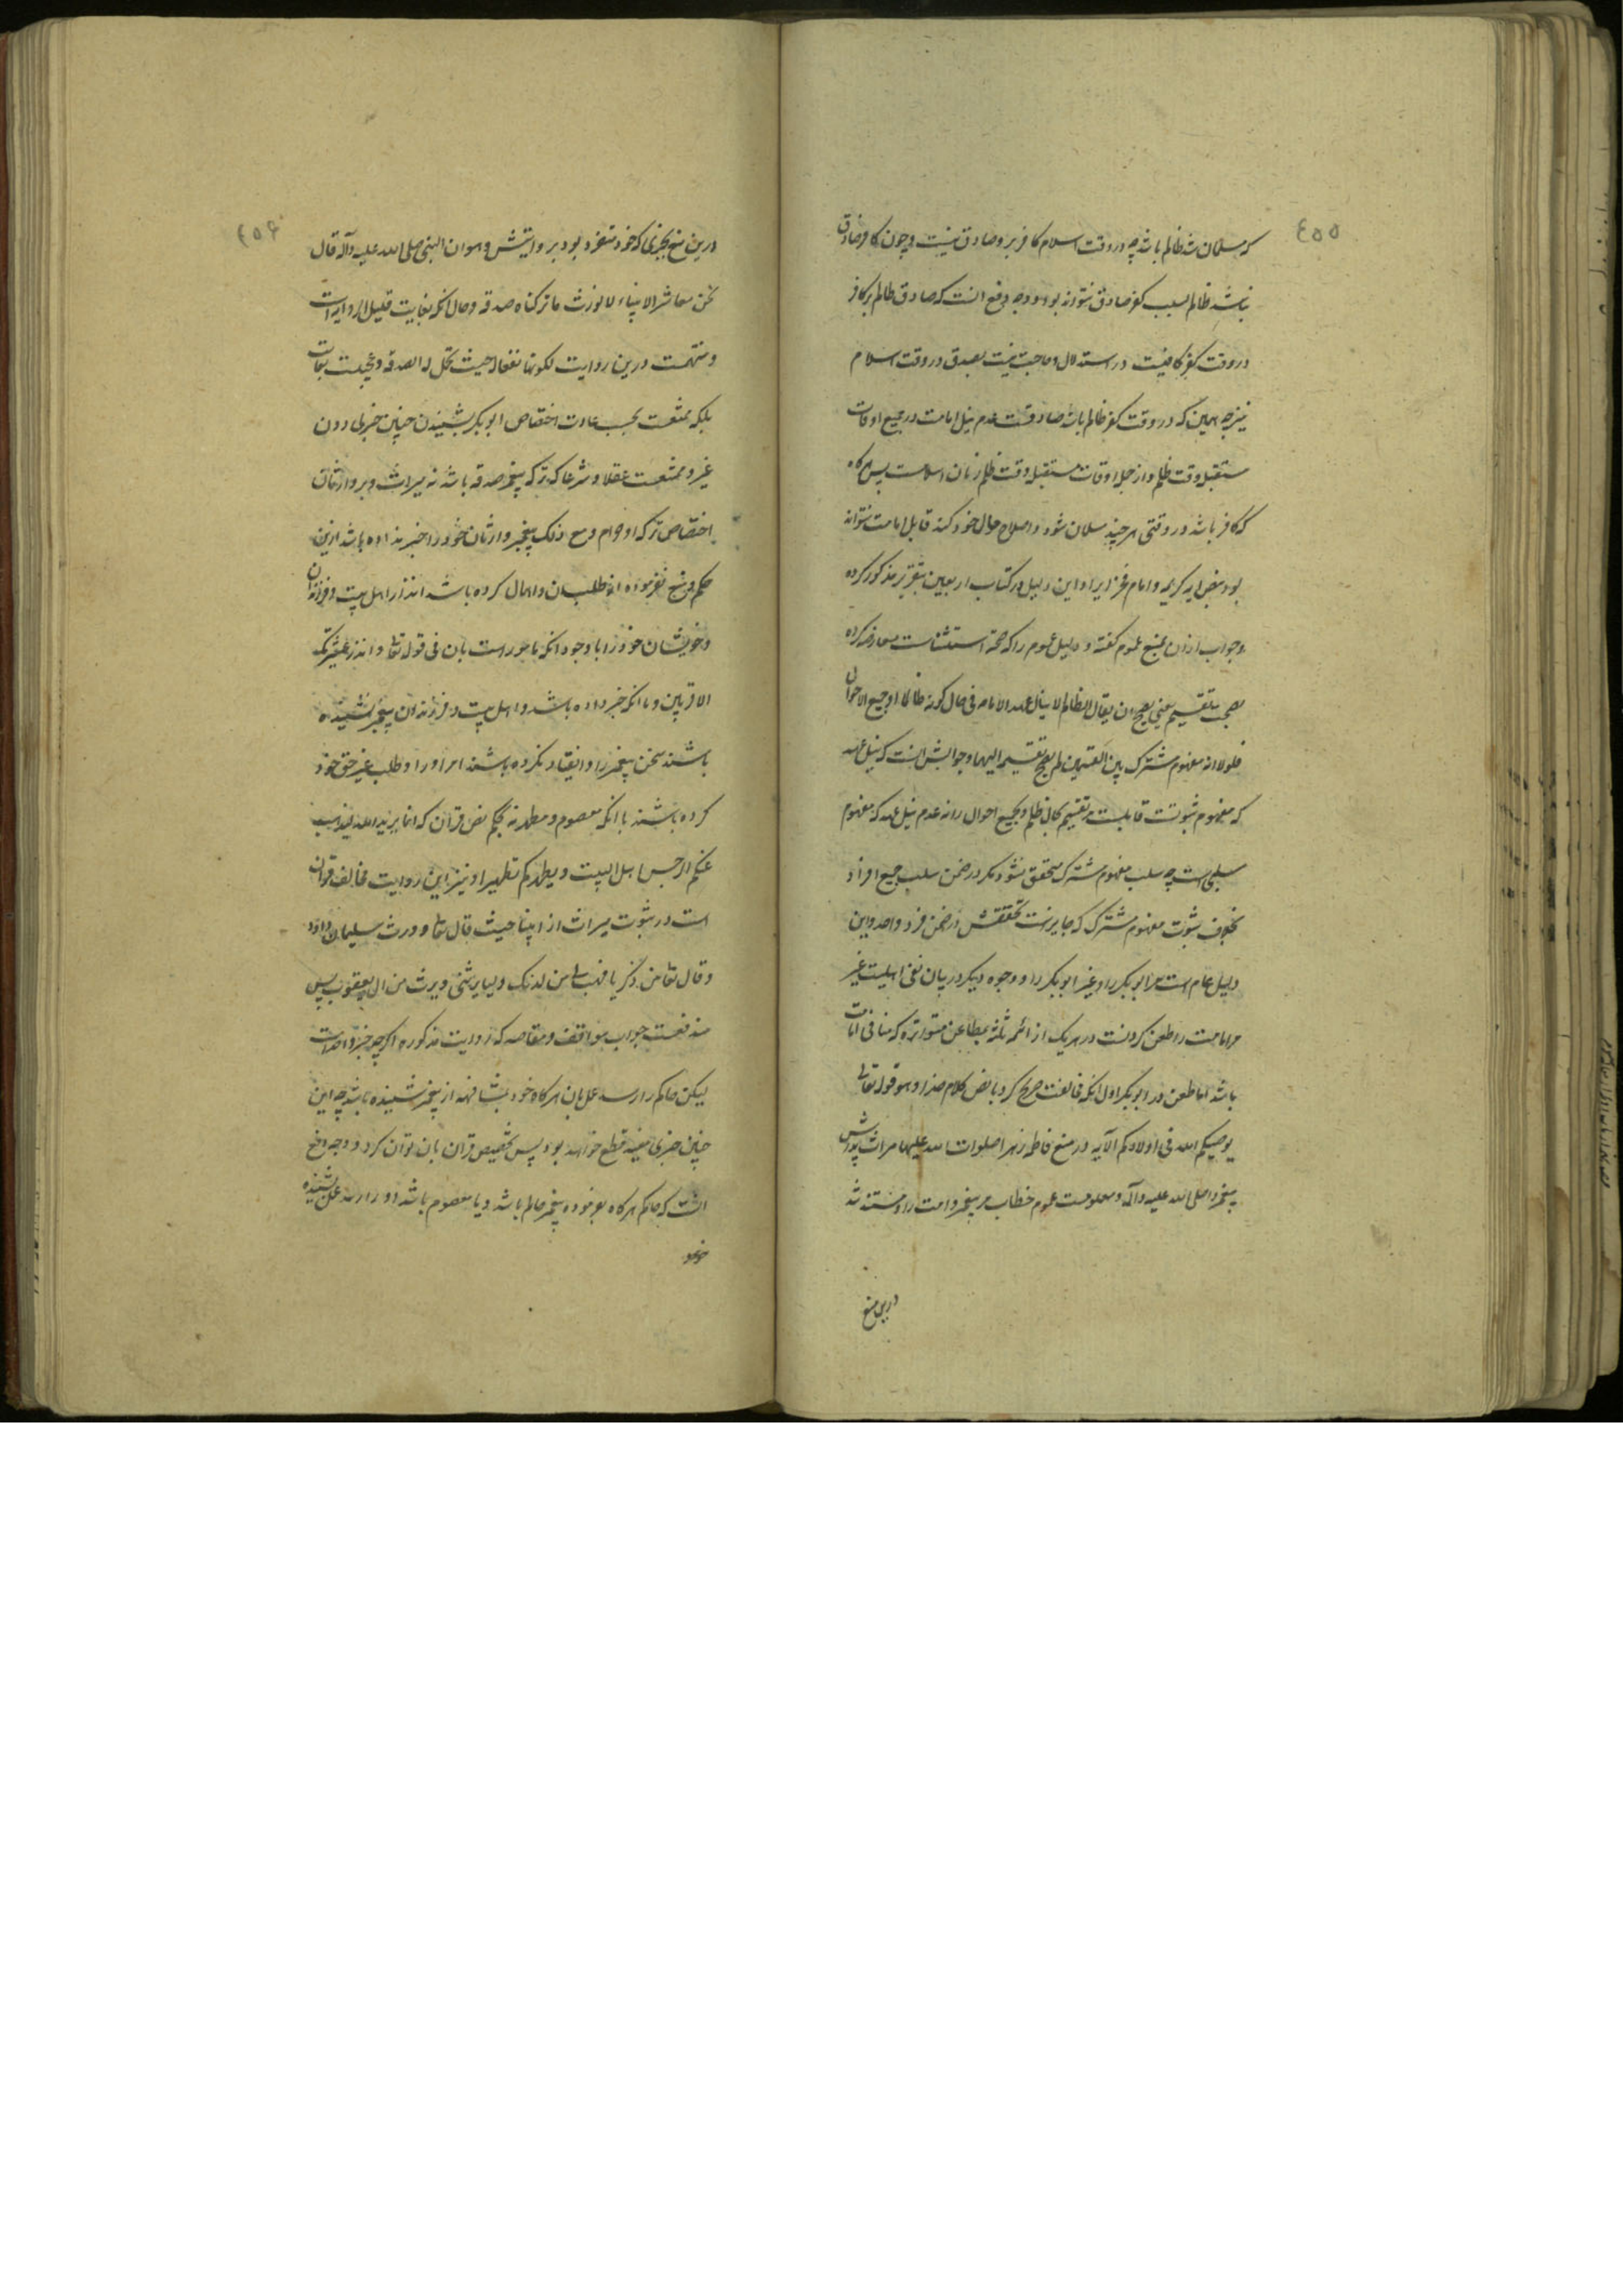 ٤٥٥
که مسلمان شد ظالم باشد چه در وقت اسلام کافر برو صادق نیست و چون کافر صادق
نباشد ظالم بسبب کفر صادق نتواند بود و وجه دفع انست که صادق ظالم بر کافر
در وقت کفر کافیست در استدلال و حاجت نیست بصدق در وقت اسلام
نیز چه همین که در وقت کفر ظالم باشد صادقست عدم نیل امامت در جمیع اوقات
مستقبل وقت ظلم و از جمله اوقات مستقبل وقت ظلم زمان اسلامست پس هرگاه
که کافر باشد در وقتی هر چند مسلمان شود و اصلاح حال خود کند قابل امامت نتواند
بود بنص ایه کریمه و امام فخر ایراد این دلیل در کتاب اربعین بتقریر مذکور کرده
و جواب از ان بمنع عموم گفته و دلیل عموم را که صحة استثناست معارضه کرده
بصحت تقسیم یعنی یصح ان یقال الظالم لا ینال عهد الامامه فی حال کونه ظالما او جمیع الاحوال
فلولا انه مفهوم مشترک بین القسمین لم یصح تقسیمه الیهما و جوابش انست که نیل عهد
که مفهوم ثبوتست قابلست مر تقسیم بحال ظلم و بجمیع احوال را نه عدم نیل عهد که مفهوم
سلبی است چه سلب مفهوم مشترک متحقق نشود مگر در ضمن سلب جمیع افراد
بخلاف ثبوت مفهوم مشترک که جایزست تحققش در ضمن فرد واحد و این
دلیل عام است مر ابوبکر را و غیر ابوبکر را و وجوه دیگر در بیان نفی اهلیت غیر
مر امامت را طعن کردنست در هر یک از ائمه ثلثه بمطاعن متواتره که منافی امامت
باشد اما طعن در ابوبکر اول انکه مخالفت صریح کرد با نص کلام خدا و هو قوله تعالی
یوصیکم الله فی اولادکم الآیه در منع فاطمه زهرا صلوات الله علیها میراث پدرش
پیغمبر را صلی الله علیه و آله و معلومست عموم خطاب مر پیغمبر و امت را و مستند شد
درین منع
٤٥۶
درین منع بخبری که خود متفرد بود بروایتش و هو ان النبی صلی الله علیه و آله قال
نحن معاشر الانبیاء لا نورث ما ترکناه صدقه و حال انکه بغایت قلیل الروایه است
و متهمست درین روایت لکونها نفعا له حیث تحل له الصدقه و
بلکه ممتنعست بحسب عادت اختصاص ابوبکر بشنیدن چنین خبری دون
غیره و ممتنعست عقلا و شرعا که ترکه پیغمبر صدقه باشد نه میراث و بر وارثان
اختصاص ترکه او حرام و مع ذلک پیغمبر وارثان خود را خبر نداده باشد ازین
حکم و منع نفرموده از طلب ان و اهمال کرده باشد انذار اهل بیت و فرزندان
و خویشان خود را با وجود انکه مامور است بان فی قوله تعا و انذر عشیرتک
الاقربین و یا انکه خبر داده باشد و اهل بیت و فرزندان پیغمبر نشنیده
باشند سخن پیغمبر را و انقیاد نکرده باشند امر او را و طلب غیر حق خود
کرده باشند با انکه معصوم و مطهرند بحکم نص قران که انما یرید الله لیذهب
عنکم الرجس اهل البیت و یطهرکم تطهیرا و نیز این روایت مخالف قران
است در ثبوت میراث از انبیا حیث قال تعا و ورث سلیمان داود
و قال تعا عن زکریا فهب لی من لدنک ولیا یرثنی و یرث من ال یعقوب پس
مندفعست جواب مواقف و مقاصد که روایت مذکوره اگرچه خبر واحد است
لیکن حاکم را رسد عمل بان هرگاه خود بمشافهه از پیغمبر شنیده باشد چه این
چنین خبری مفید قطع خواهد بود پس تخصیص قران بان توان کرد و وجه دفع
انست که حاکم هرگاه بفرموده پیغمبر حاکم باشد و یا معصوم باشد او را رسد عمل بشنیده
خود